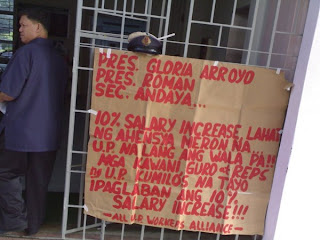 PRES. GLORIA ARROYO
PRES. ROMAN
SEC. ANDAYA...
10% SALARY INCREASE, LAHAT
NG AHENSIA MERON NA...
U.P. NA LANG ANG WALA PA!!
MGA KAWANI GURO & REPS
NG U.P. KUMILOS NA TAYO
IPAGLABAN ANG 10%
SALARY INCREASE!!!
-ALL U.P. WORKERS ALLIANCE-